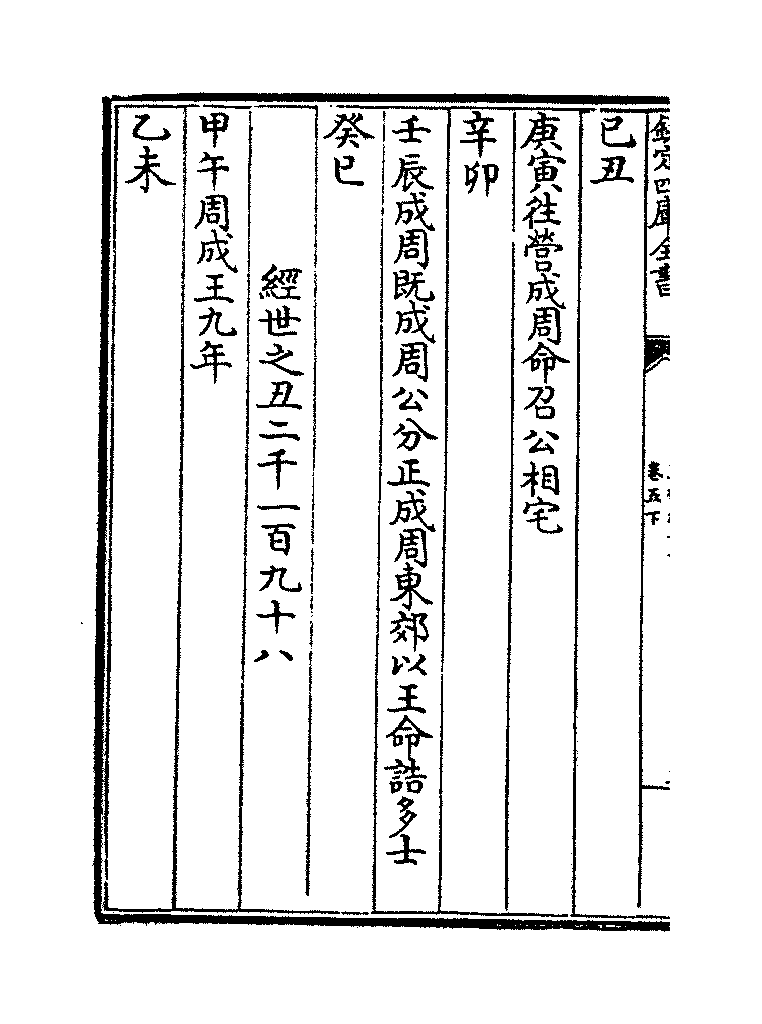 欽定四庫全書
卷五下
己丑
庚寅往營成周命召公相宅
辛卯
壬辰成周既成周公分正成周東郊以王命誥多士
癸巳
經世之丑二千一百九十八
甲午周成王九年
乙未